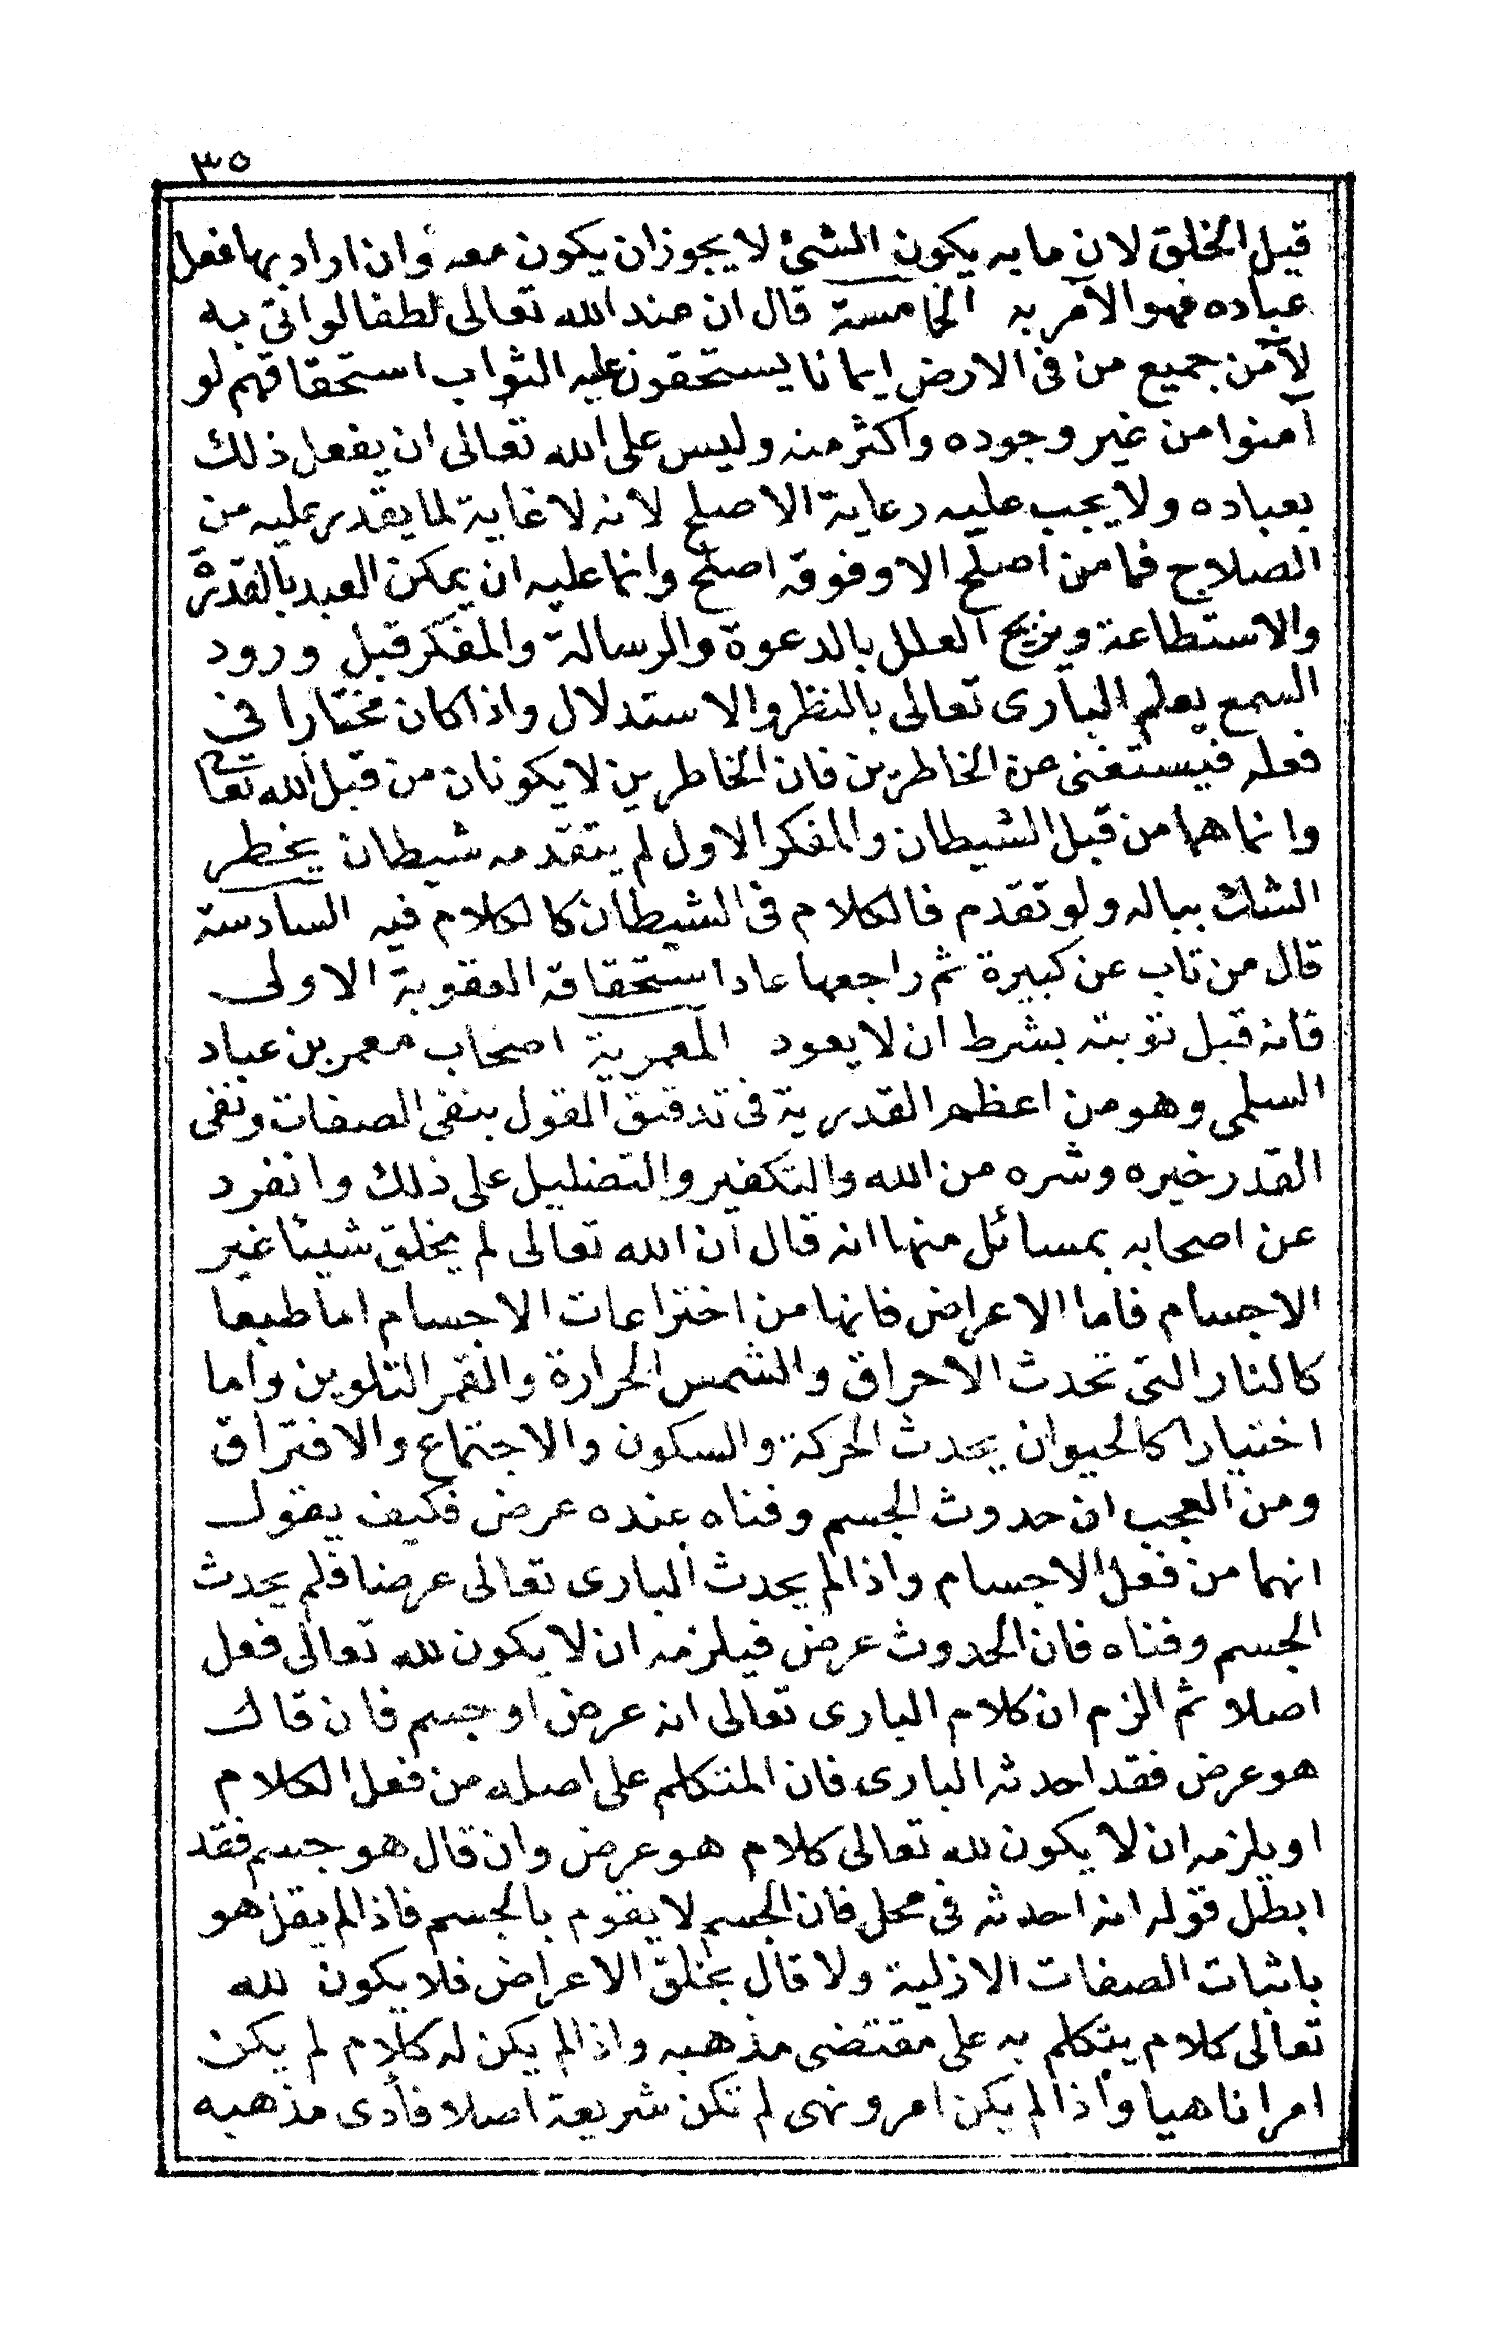 ٣٥
قبل الخلق لان ما به يكون الشئ لا يجوز ان يكون معه وان اراد بها فعل
عباده فهو الآمر به الخامسة قال ان عند الله تعالى لطفا لو اتى به
لآمن جميع من فى الارض ايمانا يستحقون عليه الثواب استحقاقهم لو
آمنوا من غير وجوده واكثر منه وليس على الله تعالى ان يفعل ذلك
بعباده ولا يجب عليه رعاية الاصلح لانه لا غاية لما يقدر عليه من
الصلاح فما من اصلح الا وفوقه اصلح وانما عليه ان يمكن العبد بالقدرة
والاستطاعة ويزيح العلل بالدعوة والرسالة والمفكر قبل ورود
السمع يعلم البارى تعالى بالنظر والاستدلال واذا كان مختارا فى
فعله فيستغنى عن الخاطرين فان الخاطرين لا يكونان من قبل الله تعا
وانما هما من قبل الشيطان والمفكر الاول لم يتقدمه شيطان يخطر
الشك بباله ولو تقدم فالكلام فى الشيطان كالكلام فيه السادسة
قال من تاب عن كبيرة ثم راجعها عاد استحقاقه العقوبة الاولى
فانه قبل توبته بشرط ان لا يعود المعمرية اصحاب معمر بن عباد
السلمى وهو من اعظم القدرية فى تدقيق القول بنفى الصفات ونفى
القدر خيره وشره من الله والتكفير والتضليل على ذلك وانفرد
عن اصحابه بمسائل منها انه قال ان الله تعالى لم يخلق شيئا غير
الاجسام فاما الاعراض فانها من اختراعات الاجسام اما طبعا
كالنار التى تحدث الاحراق والشمس الحرارة والقمر التلوين واما
اختيارا كالحيوان يحدث الحركة والسكون والاجتماع والافتراق
ومن العجب ان حدوث الجسم وفناه عنده عرض فكيف يقول
انهما من فعل الاجسام واذا لم يحدث البارى تعالى عرضا فلم يحدث
الجسم وفناه فان الحدوث عرض فيلزمه ان لا يكون لله تعالى فعل
اصلا ثم الزم ان كلام البارى تعالى انه عرض او جسم فان قال
هو عرض فقد احدثه البارى فان المتكلم على اصله من فعل الكلام
او يلزمه ان لا يكون لله تعالى كلام هو عرض وان قال هو جسم فقد
ابطل قوله انه احدثه فى محل فان الجسم لا يقوم بالجسم فاذا لم يقل هو
باثبات الصفات الازلية ولا قال بخلق الاعراض فلا يكون لله
تعالى كلام يتكلم به على مقتضى مذهبه واذا لم يكن له كلام لم يكن
امرا ناهيا واذا لم يكن امر ونهى لم تكن شريعة اصلا فأدى مذهبه